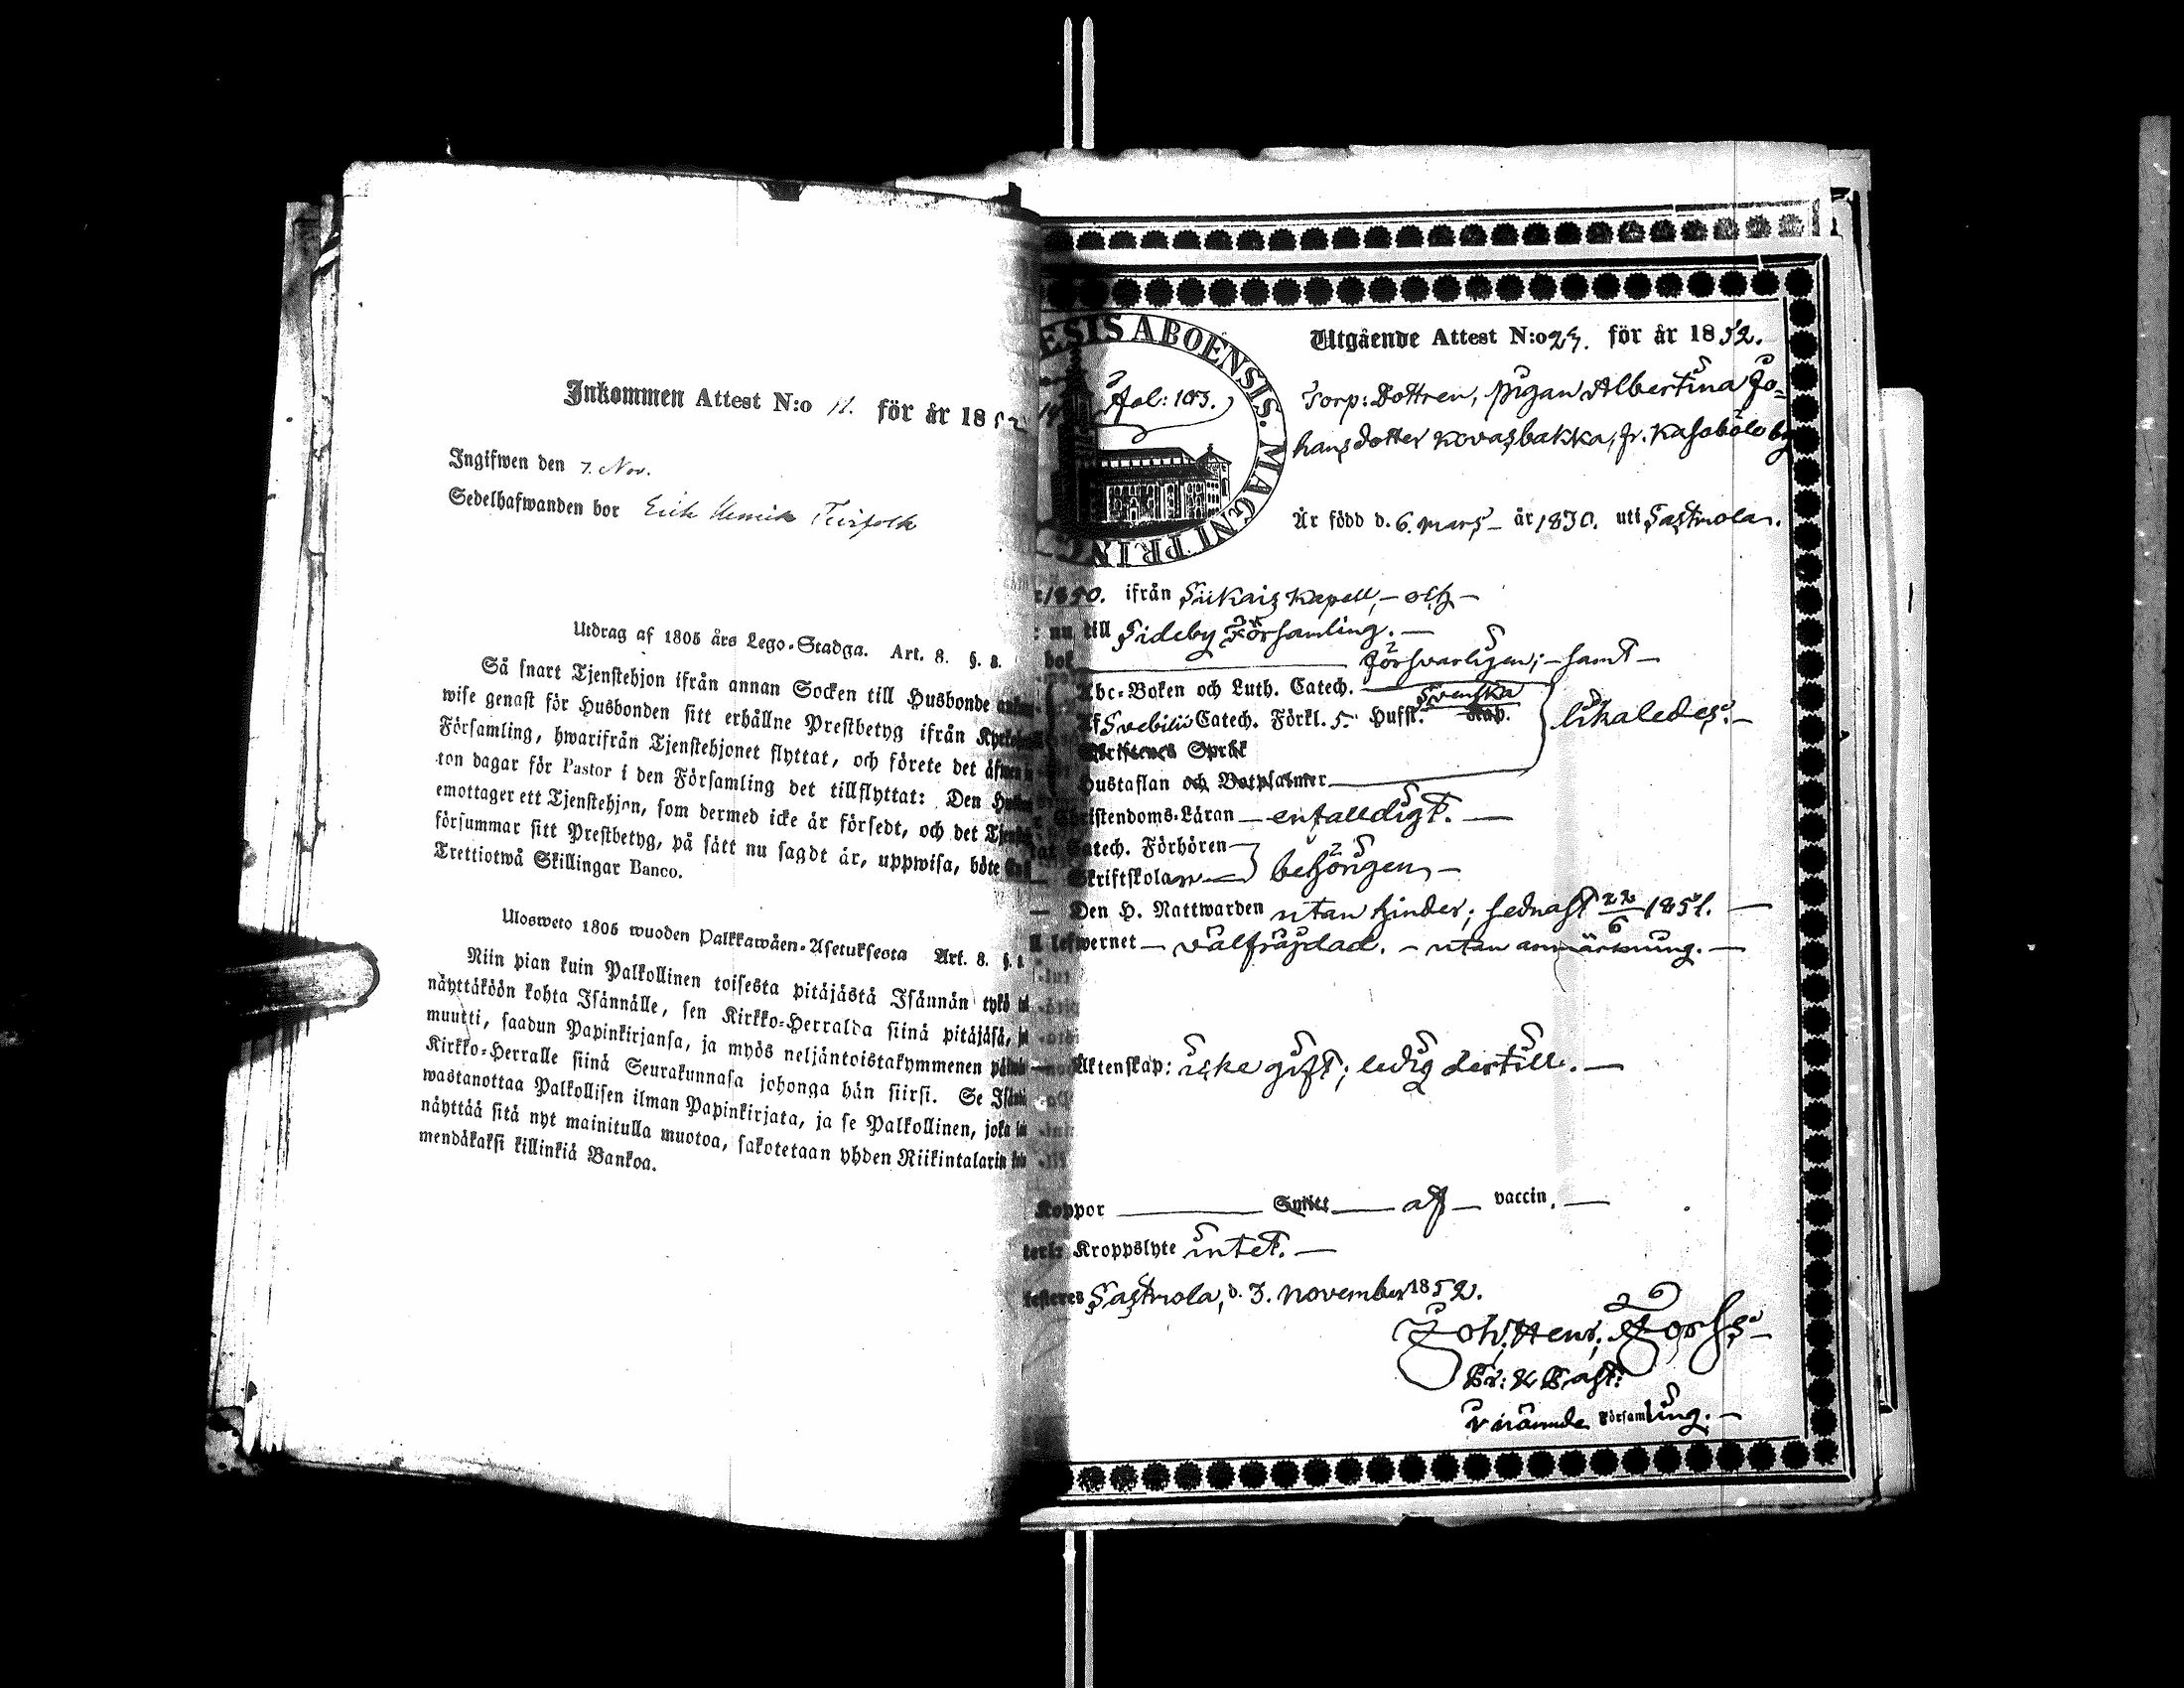 Inkommen Attest N:o 11. för år 1852
Ingifwen den 7. Nov.
Sedelhafwanden bor Erik Henrik
Utdrag af 1805 års Lego-Stadga. Art. 8. §. 8.
Så snart Tjenstehjon ifrån annan Socken till Husbonde
wise genast för Husbonden sitt erhållne Prestbetyg ifrån
Församling, hwarifrån Tjenstehjonet flyttat, och förete det
ton dagar för Pastor i den Församling det tillflyttat: Den
emottager ett Tjenstehjon, som dermed icke är försedt, och det
försummar sitt Prestbetyg, på sätt nu sagdt är, uppwisa, böte
Trettiotwå Skillingar Banco.
Ulosweto 1805 wuoden Palkkawäen-Asetuksesta Art. 8. §.
Niin pian kuin Palkollinen toisesta pitäjästä Isännän tykö
näyttäköön kohta Isännälle, sen Kirkko-Herralda siinä pitäjäsä,
muutti, saadun Papinkirjansa, ja myös neljäntoistakymmenen
Kirkko-Herralle siinä Seurakunnasa johonga hän siirsi. Se
wastanottaa Palkollisen ilman Papinkirjata, ja se Palkollinen, joka
näyttää sitä nyt mainitulla muotoa, sakotetaan yhden Riikintalarin
mendäkaksi killinkiä Bankoa.
ESIS ABOENSIS. MAGNI PRINC
Fol: 103.
Utgående Attest N:o 23. för år 1852.
Torp: Dottren, pigan Albertina Jo=
hansdotter Kovasbakka, fr. Kasaböle by
Är född d. 6. Mars – år 1830. uti Sastmola.
1850. ifrån Siikais Kapell, – och –
nu till Sideby Församling. –
bok försvarligen; – samt –
Abc-Boken och Luth. Catech.
Af Svebilii Catech. Förkl. 5. Hufst. Svenska Kap. likaledes. –
Skriftenes Språk
Hustaflan och Botpsalmer
Christendoms-Läran – enfalldigt. –
Catech. Förhören
Skriftskolan – behörigen –
– Den H. Nattwarden utan hinder; sednast 22/6 1851. –
lefwernet – välfrägdad. – utan anmärkning. –
Äktenskap: icke gift; ledig dertill. –
Koppor – Spridt – af – vaccin. –
Kroppslyte intet. –
Sastmola, d. 3. November 1852.
Joh. Henr. Forss
Pr: & Past:
i nämnde Församling. –